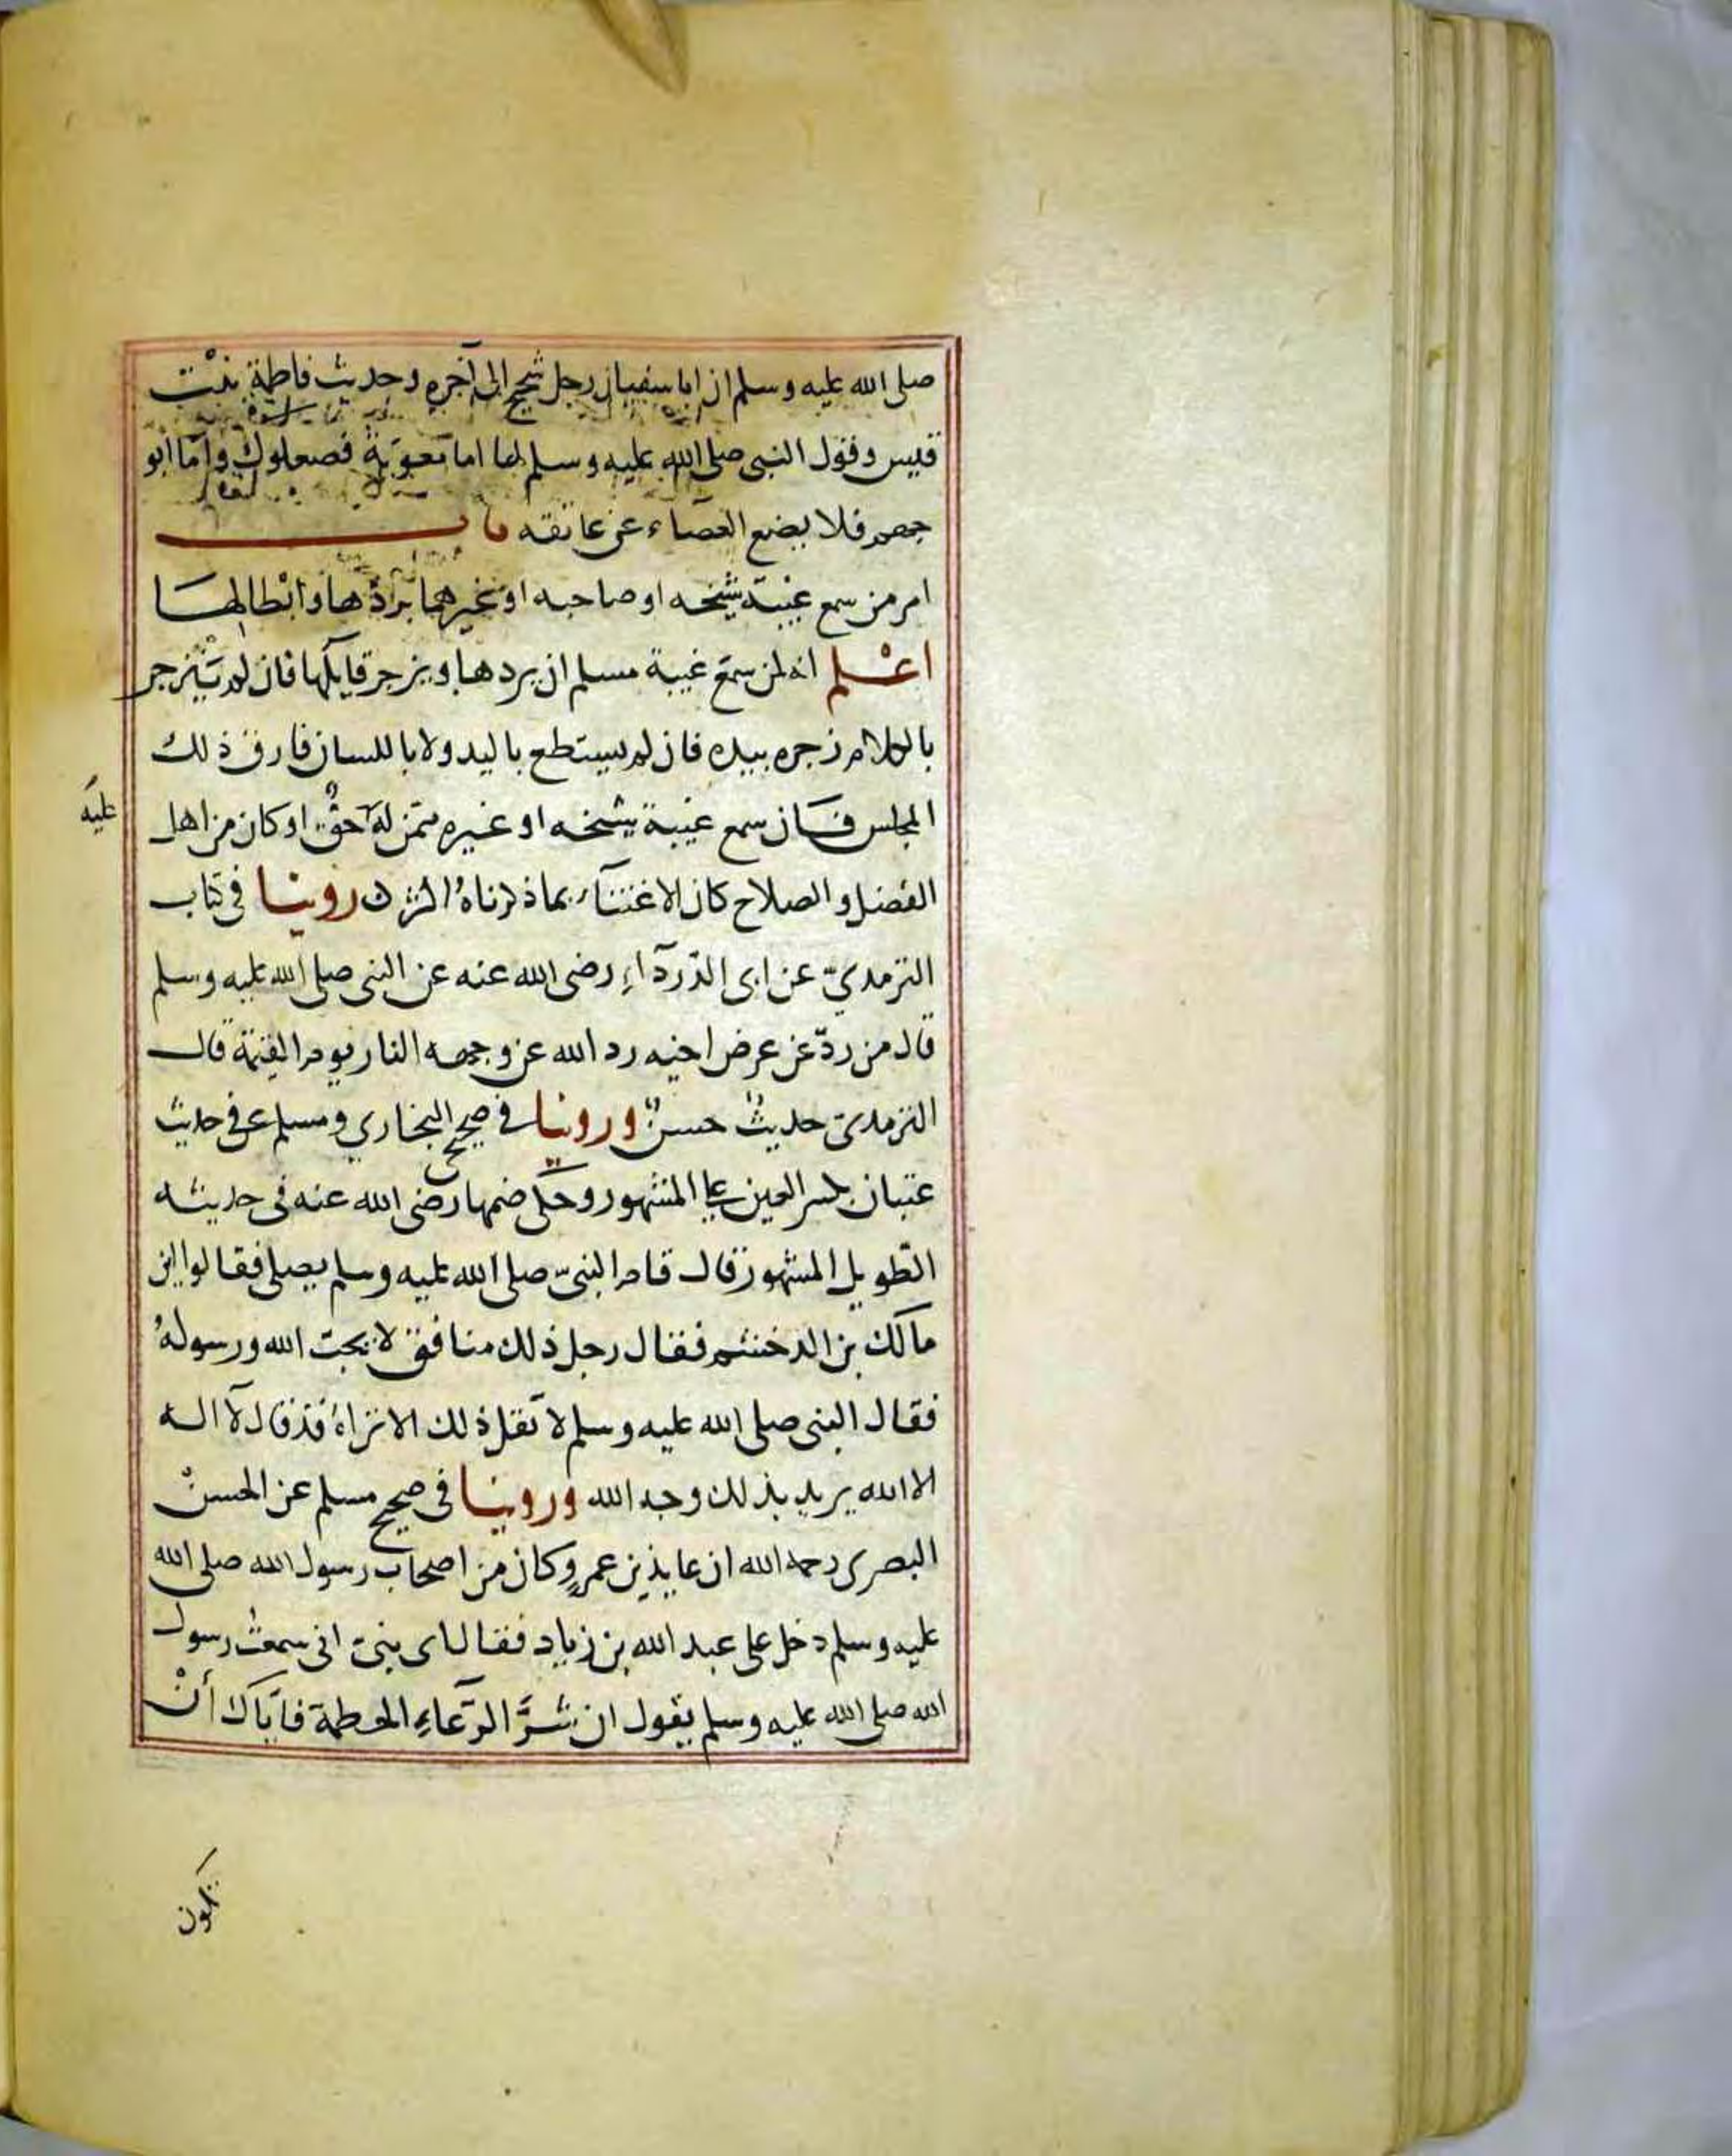 صلى الله عليه وسلم ان ابا سفيان رجل شحيح الى آخره وحديث فاطمة بنت
قيس وقول النبى صلى الله عليه وسلم لها اما معوية فصعلوك وأما أبو
جهم فلا يضع العصاء عن عاتقه باب
امر من سمع غيبة شيخه او صاحبه او غيرهما بردّها وابطالها
اعلم انه لمن سمع غيبة مسلم ان يردها ويزجر قايلها فان لم ينزجر
بالكلام زجره بيده فان لم يستطع باليد ولا باللسان فارق ذلك
المجلس فان سمع غيبة شيخه او غيره ممّن له حقٌّ او كان من اهل
عليه
الفضل والصلاح كان الاعتنآء بما ذكرناه اكثر روينا فى كتاب
الترمديّ عن ابى الدّردآء رضى الله عنه عن النبى صلى الله عليه وسلم
قال من ردّ عن عرض اخيه رد الله عن وجهه النار يوم القيمة قال
الترمدى حديثٌ حسنٌ وروينا فى صحيح البخاري ومسلم فى حديث
عتبان بكسر العين على المشهور وحكى ضمها رضى الله عنه فى حديثه
الطّويل المشهور قال قام النبىّ صلى الله عليه وسلم يصلى فقالوا اين
مالك بن الدخشم فقال رجل ذلك منافق لا يحبّ الله ورسولهُ
فقال النبى صلى الله عليه وسلم لا تقل ذلك الا تراهُ قد قال لآ اله
الا الله يريد بذلك وجه الله وروينا فى صحيح مسلم عن الحسن
البصرى رحمه الله ان عايذ بن عمرٍو وكان من اصحاب رسول الله صلى الله
عليه وسلم دخل على عبد الله بن زياد فقال اى بنىّ انى سمعت رسول
الله صلى الله عليه وسلم يقول ان شرَّ الرّعآءِ الحطمة فايّاك أنْ
تكون